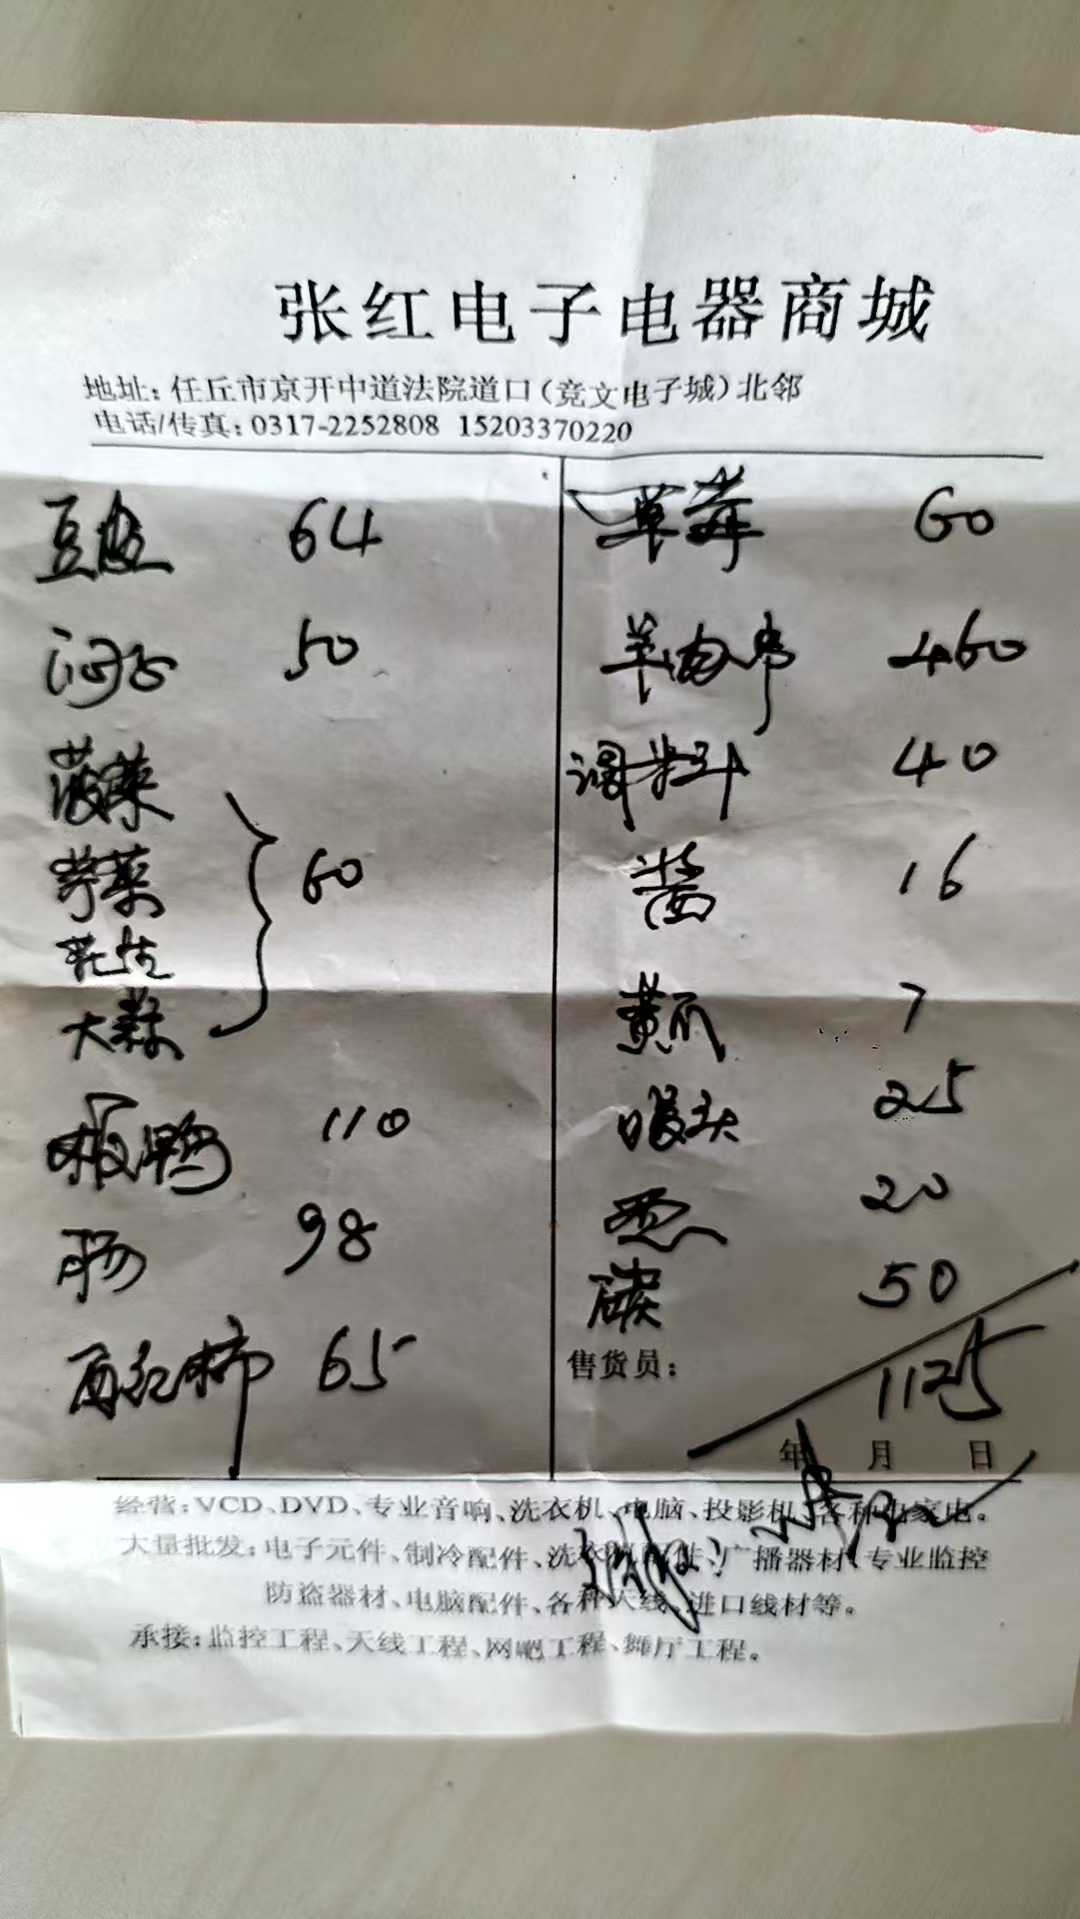 张红电子电器商城
地址:任丘市京开中道法院道口(竞文电子城)北邻
电话/传真:0317-2252808 15203370220
豆皮 64
50
菠菜
芹菜
花生
大蒜
60
板鸭 110
肠 98
西红柿 65
草莓 60
羊肉串 460
调料 40
酱 16
黄瓜 7
馒头 25
20
碳 50
售货员:
1125
年 月 日
经营:VCD、DVD、专业音响、洗衣机、电脑、投影机、各种电家电。
大量批发:电子元件、制冷配件、洗衣机配件、广播器材、专业监控
防盗器材、电脑配件、各种天线、进口线材等。
承接:监控工程、天线工程、网吧工程、舞厅工程。